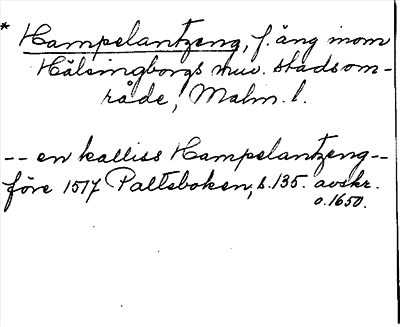 * Hampelantzeng, f. äng inom
Hälsingborgs nuv. stadsom-
råde, Malm. l.
-- en kalliss Hampelantzeng --
före 1517 Palteboken, s. 135. avskr.
o. 1650.